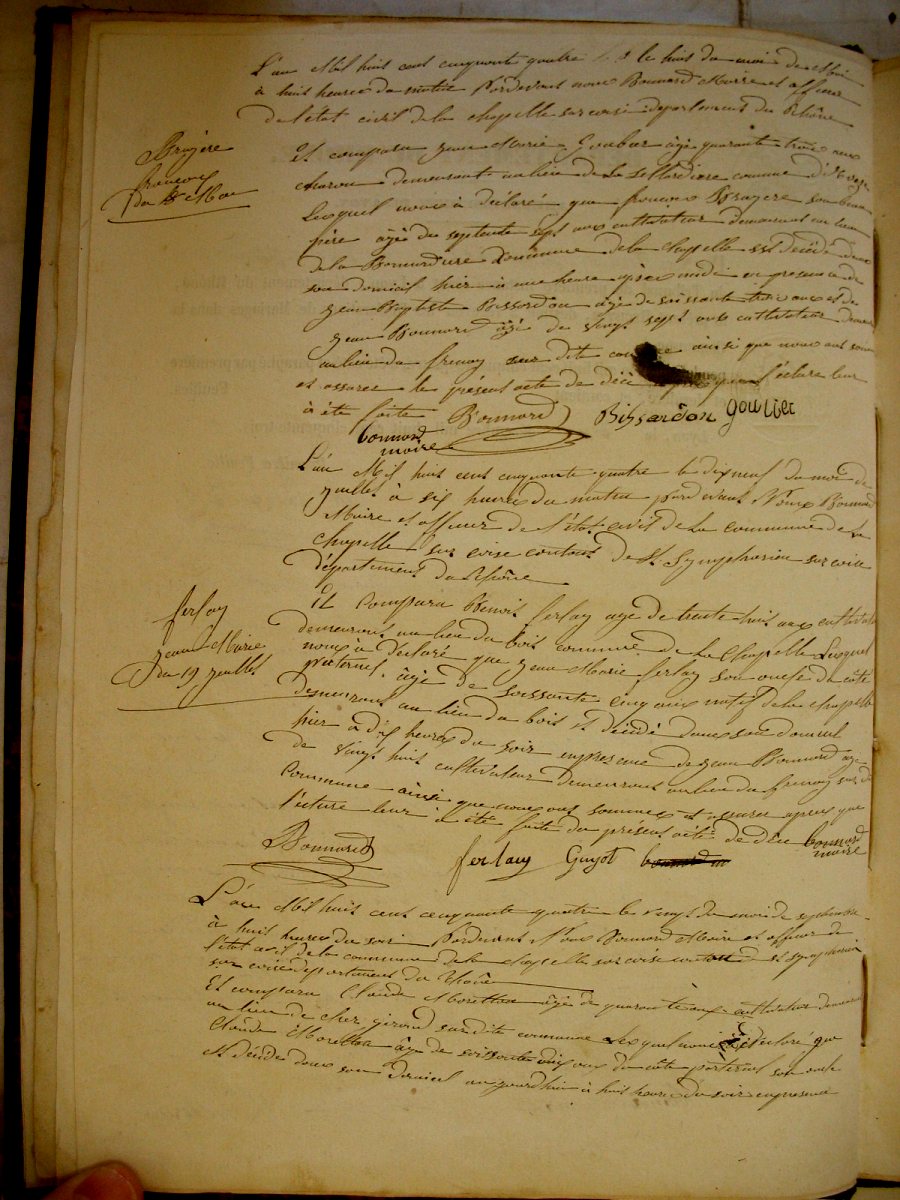 L'an Mil huit cent cinquante quatre le huit du mois de Mai
à huit heures du matin Pardevant nous Bonnard Maire et officier
de l'état civil de la chapelle sur coise departement du Rhône
Bruyere
francois
du 8 Mai
Et comparu jean Marie Goubier âgé quarante trois ans
charon demeurante au lieu de commune d'
Lesquel nous à déclaré que francois Bruyere son beau
père âgé de septente sept ans cultivateur demeurant au lieu
de la Bonnardiere commune de la chapelle est décédé dans
son domicil hier à une heure après midi en presence de
jean Baptiste Bissardon âgé de soissante trois ans et de
jean Bonnard âgé de vingt sept ans cultivateur demeurant
au lieu du frenay sur dite ainsi que nous ont
et assurer le présent acte de décè après que l'ecture leur
à été faite Bonnard Bissardon goubier
bonnard
maire
L'an Mil huit cent cinquante quatre le dixneuf du moi de
juillet à six heures du matin pardevant Nous Bonnard
Maire et officier de l'état civil de la commune de La
chapelle sur coise canton de St Symphorien sur coise
département du Rhône
ferlay
jean Marie
du 19 juillet
Et comparu Benoit ferlay age de trente huit ans cultivateur
demeurant au lieu du bois commune de La Chapelle Lesquel
nous à déclaré que jean Marie ferlay son oncle du côté
paternel âgé de soissante cinq ans natif de la chapelle
demeurant au lieu du bois Et décédé dans son domicil
hier à dix heures du soir en presence de jean Bonnard age
de vingt huit cultivateur demeurant au lieu du frenay sur dit
commune ainsi que nous ont et assurer apres que
l'ecture leur à été faite du présent acte de décè bonnard
maire
Bonnard ferlay Guyot
L'an Mil huit cent cinquante quatre le vingt du moi de septembre
à huit heures du soir Pardevant Nous Bonnard Maire et officier de
l'état civil de la commune de la chapelle sur coise canton de st symphorien
sur coise departement du Rhône
Et comparu Claude Moretton âgé de quarante ans cultivateur demeurant
au lieu de chez girond sur dite commune Lesquel nous à déclaré que
Claude Moretton âgé de soissante dix ans du côté paternel son oncle
Et décédé dans son domicil aujourdhui à huit heures du soir en presence